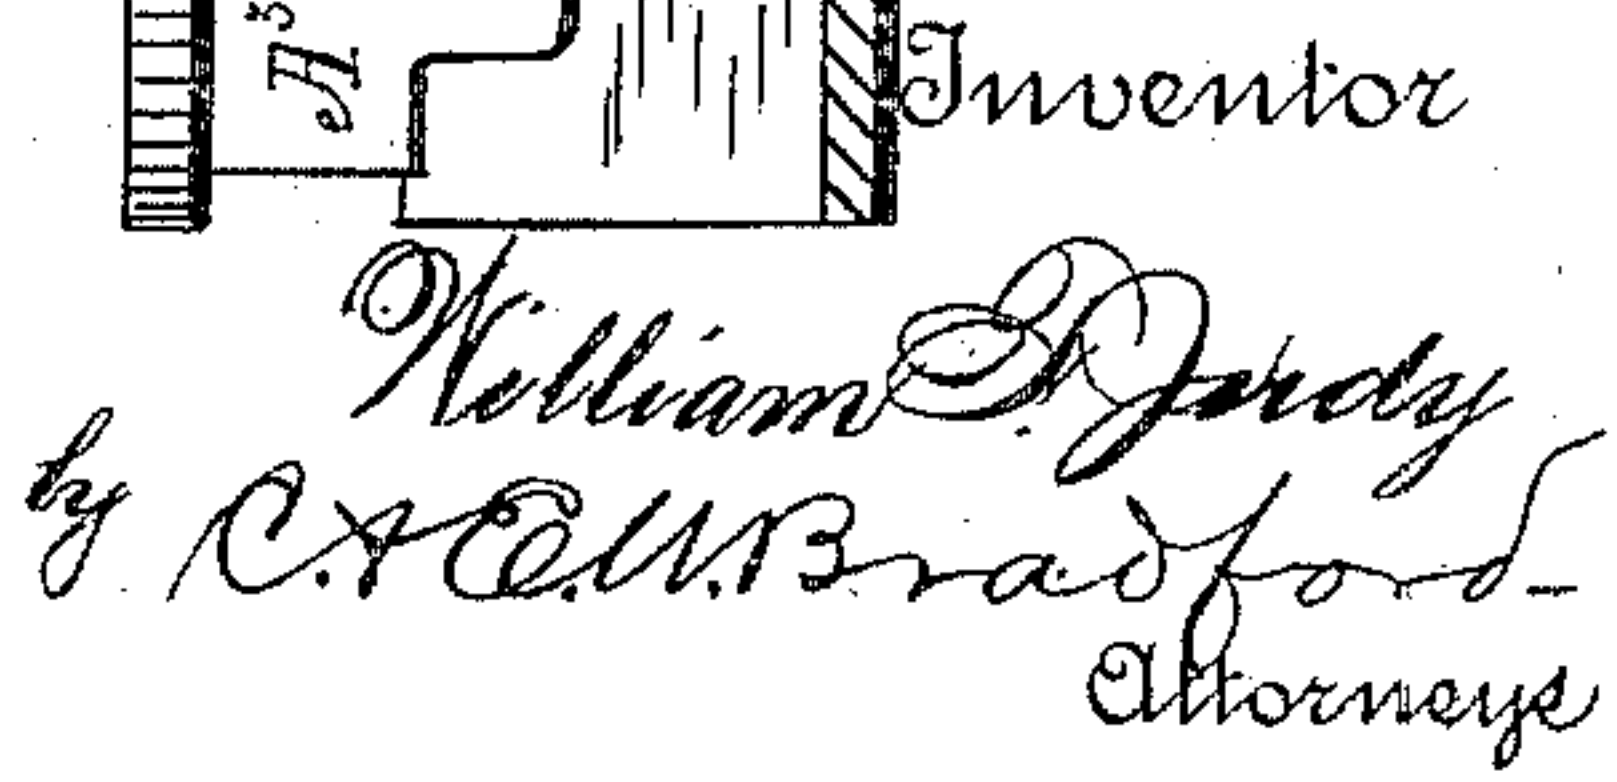 A³
Inventor
William
by C. & E. W. Bradford
Attorneys